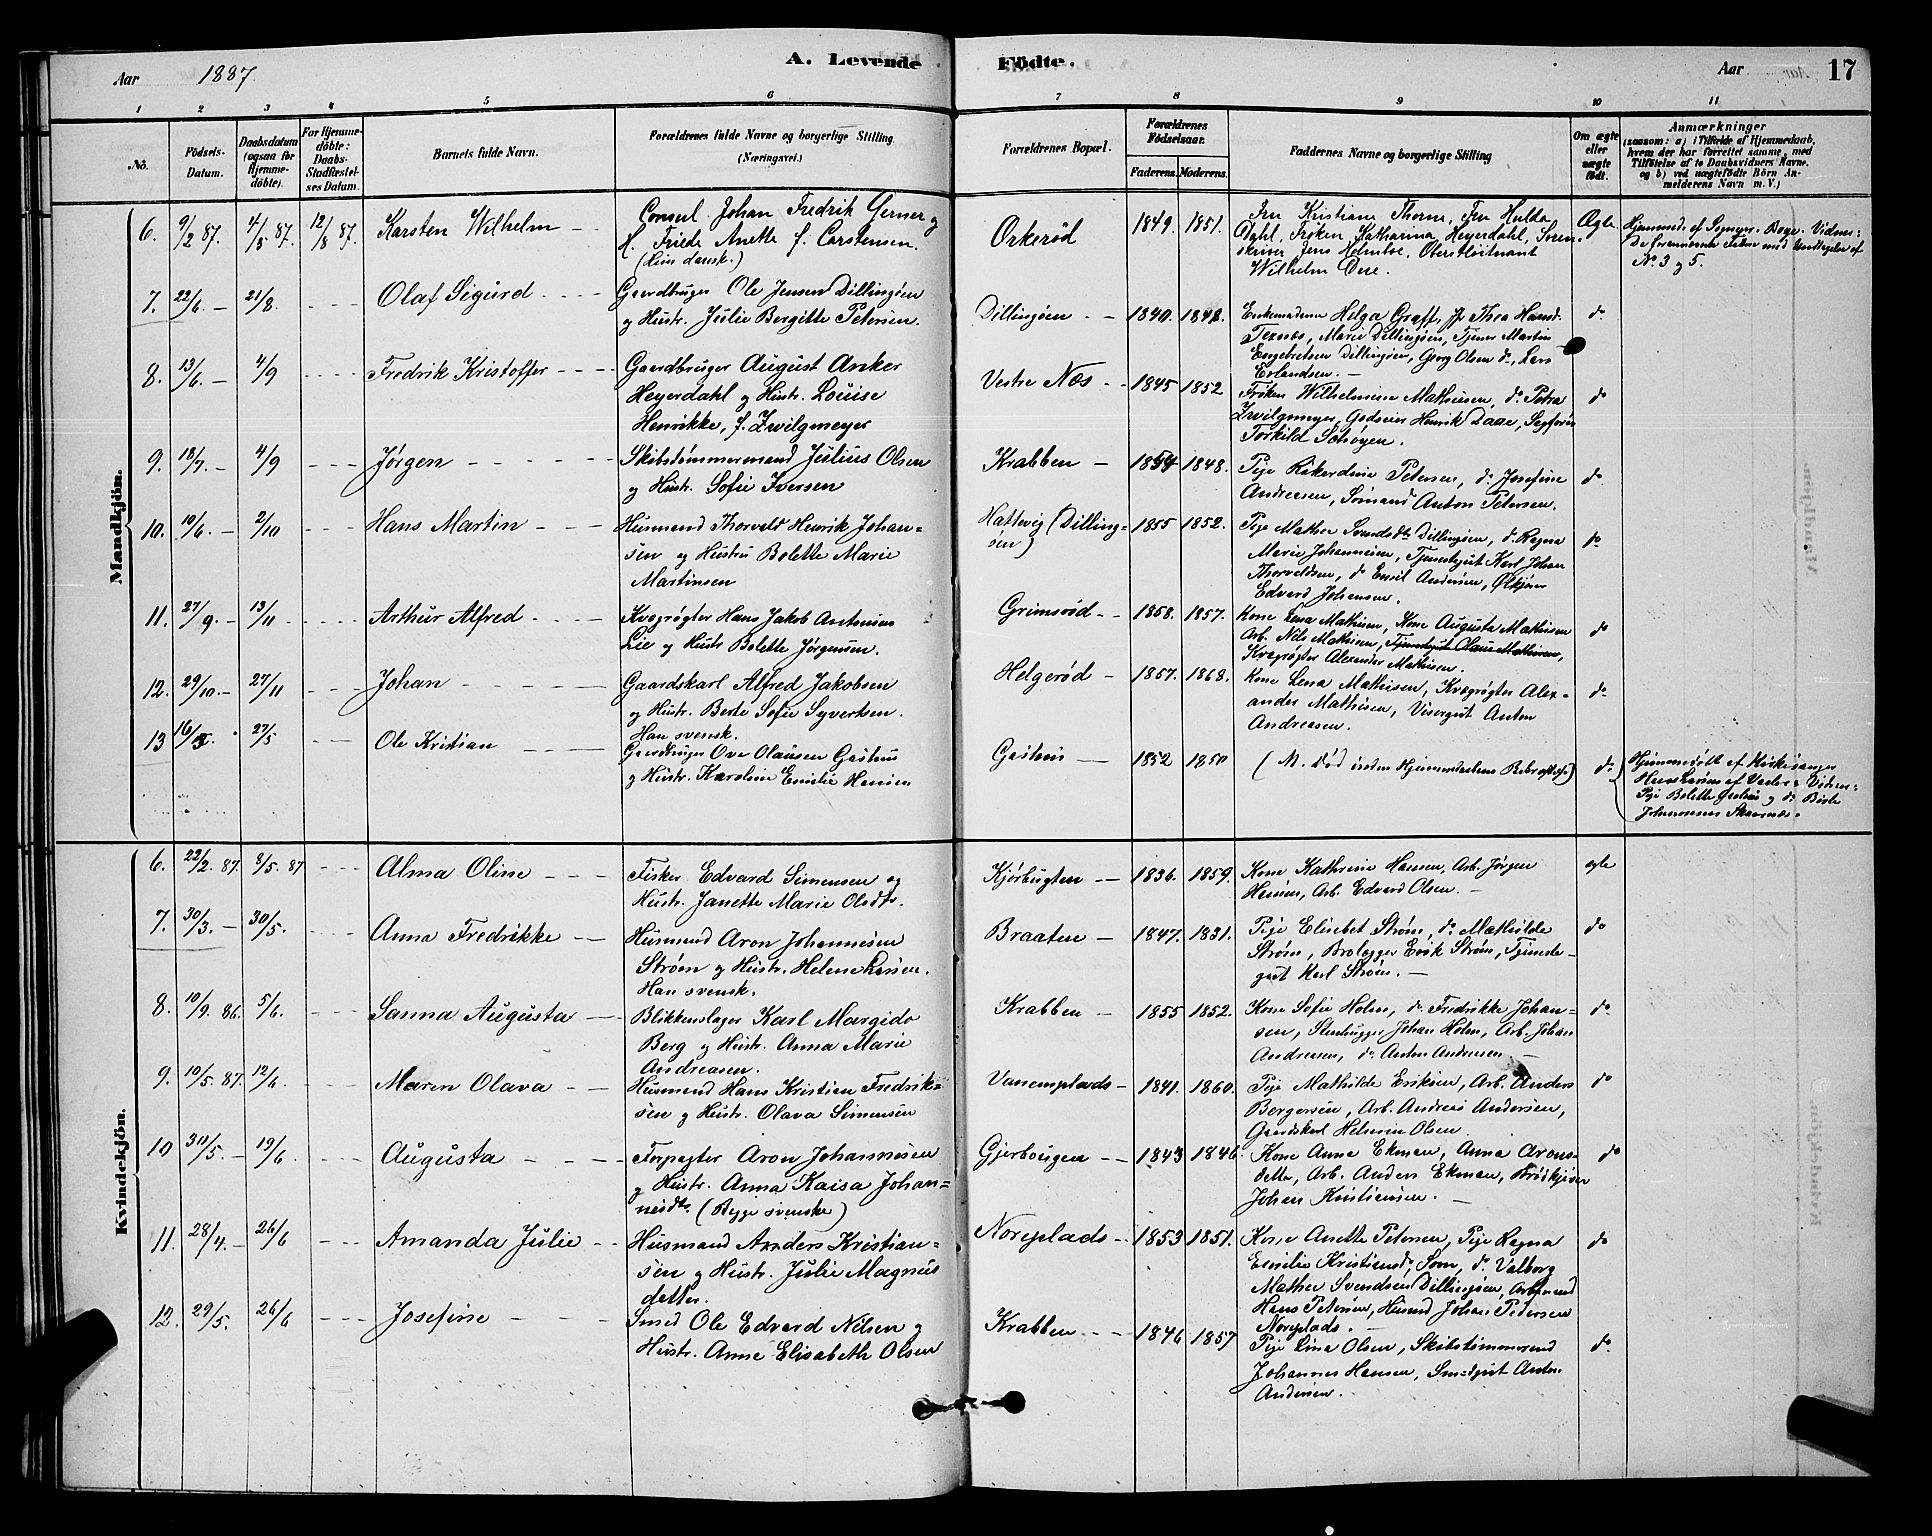 Aar 1887.
A. Levende
Födte.
Aar
17
1 2 3 4 5 6 7 8 9 10 11
No.
Födsels-Datum.
Daabsdatum (ogsaa for Hjemmedöbte).
For Hjemmedöbte: Daabs-Stadfæstelses Datum.
Barnets fulde Navn.
Forældrenes fulde Navne og borgerlige Stilling (Næringsvei.)
Forældrenes Bopæl.
Forældrenes Födselsaar.
Faderens. Moderens.
Faddernes Navne og borgerlige Stilling
Om ægte eller uægte födt.
Anmærkninger
(saasom: a) i Tilfælde af Hjemmedaab, hvem der har forrettet samme, med Tilföielse af to Daabsvidners Navne. og b) ved uægtefödte Börn Anmelderens Navn m. V.)
Mandkjön.
6. 9/2 87. 4/5 87. 12/8 87. Karsten Wilhelm
Consul Johan Fredrik Gerner og
H. Friede Anette f. Carstensen.
(Hun dansk.)
Orkerød 1849. 1851.
Fru Kristiane Thorne, Fru Hulda
Dahl, Frøken Katharina Heyerdahl, Soren-
skriver Jens Holmboe, Oberstløitnant
Wilhelm Due.
Ægte.
No 3 og 5.
7. 22/6 — 21/8. Olaf Sigurd
Gaardbruger Ole Jensen Dillingøen
og Hustr. Julie Bergitte Petersen.
Dillingøen 1840. 1848.
Enkemadame Helga Graff, Jfr Thea Hansd.
Texnæs, Marie Dillingøen, Tjener Martin
Engebretsen Dillingøen, Georg Olsen do, Lars
Erlandsen.
do
8. 13/6. — 4/9 Fredrik Kristoffer
Gaardbruger August Anker
Heyerdahl og Hustr. Louise
Henrikke, f. Zwilgmeyer
Vestre Næs 1845 1852
Frøken Wilhelmine Mathiesen, do Petra
Zwilgmeyer, Godseier Henrik
Torkild
do
9. 18/7. — 4/9 Jørgen
Skibstømmermand Julius Olsen
og Hustr. Sofie Iversen
Krabben 1854 1848.
Pige Rikardine Petersen, do Josefine
Andreasen, Sømand Anton Petersen.
do
10. 10/6. — 2/10 Hans Martin
Husmand Thorvald Henrik Johan-
sen og Hustru Bolette Marie
Martinsen
Hattevig (Dilling-
øen) 1855 1852.
Pige Mathea Svendsdtr Dillingøen, do Ragna
Marie Johannesen, Tjenestegut Karl Johan
Thorvaldsen, do Emil Andersen, Ølkjører
Edvard Johansen.
do
11. 27/9. — 13/11 Arthur Alfred
Kvægrøgter Hans Jakob Antonius
Lie og Hustr Bolette Jørgensen.
Grimsrød 1858. 1857.
Kone Lena Mathisen, Kone Augusta Mathisen
Arb. Nils Mathisen, Tjenestegut Olaus Mathisen,
Kvægrøgter Alexander Mathisen.
do
12. 29/10. — 27/11 Johan
Gaardskarl Alfred Jakobsen
og Hustr. Berte Sofie Syversen.
Han svensk.
Helgerød 1857. 1868.
Kone Lena Mathisen, Kvægrøgter Alex-
ander Mathisen, Visergut Anton
Andreasen.
do
13 16/5. 27/5 Ole Kristian
Gaardbruger Ove Olausen Gashus
og Hustr. Karoline Emilie Hansen
Gashus 1852 1850
(N. død inden Hjemmedaabens Bekræftelse)
do
Hjemmedøbt af Kirkesanger
Pige Bolette
Kvindekjön.
6. 22/2. 87. 8/5. 87 Alma Oline
Fisker Edvard Simensen og
Hustr. Janette Marie Olsdtr.
Kjørbugten 1836. 1859.
Kone Kathrine Hansen, Arb. Jørgen
Hansen, Arb. Edvard Olsen.
ægte
7. 30/3. — 30/5. Anna Fredrikke
Husmand Aron Johannesen
Strøm og Hustr. Helene Larsen.
Han svensk.
Braaten 1847. 1831.
Pige Elisebet Strøm, do Mathilde
Strøm, Brolægger Erik Strøm, Tjeneste-
gut Karl Strøm.
do
8. 10/9. 86. 5/6. Sanna Augusta
Blikkenslager Karl Margido
Berg og Hustr. Anna Marie
Andreasen.
Krabben 1855 1852.
Kone Sofie Holm, do Fredrikke Johan-
sen, Stenhugger Johan Holm, Arb. Johan
Andreasen, do Anton Andreasen.
do
9. 10/5. 87. 12/6. Maren Olava
Husmand Hans Kristian Fredrik-
sen og Hustr. Olava Simensen
Vanemplads 1841. 1860.
Pige Mathilde Eriksen, Arb. Anders
Bergersen, Arb. Andreas Andersen,
Gaardskarl Helmin Olsen.
do
10 30/5. — 19/6. Augusta
Forpagter Aron Johannesen
og Hustr. Anna Kaisa Johan-
nesdtr. (Begge svenske)
Gjerbougen 1843 1846.
Kone Anna Ekman, Anna Arons-
datter, Arb. Anders Ekman, Brødkjører
Johan Kristiansen.
do
11. 28/4. — 26/6 Amanda Julie
Husmand Anders Kristian-
sen og Hustr. Julie Magnus
datter.
Noreplads 1853 1851.
Kone Anette Petersen, Pige Ragna
Emilie Kristiansd., Søm, do Valborg
Mathea Svendsen Dillingøen, Arbmand
Hans Petersen, Husmd Johan Pedersen
Noreplads.
do
12. 29/5. 26/6 Josefine
Smed Ole Edvard Nilsen og
Hustr. Anne Elisabeth Olsen
Krabben 1846 1857
Pige Lina Olsen, Skibstømmermd
Johannes Hansen, Smedgut Anton
Andersen.
do